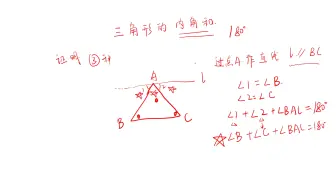 三角形的内角和 180°
证明 ③种
过点A作直线 l // BC
A l
1 2
B C
∠1 = ∠B
∠2 = ∠C
∠1 + ∠2 + ∠BAC = 180°
∠B + ∠C + ∠BAC = 180°